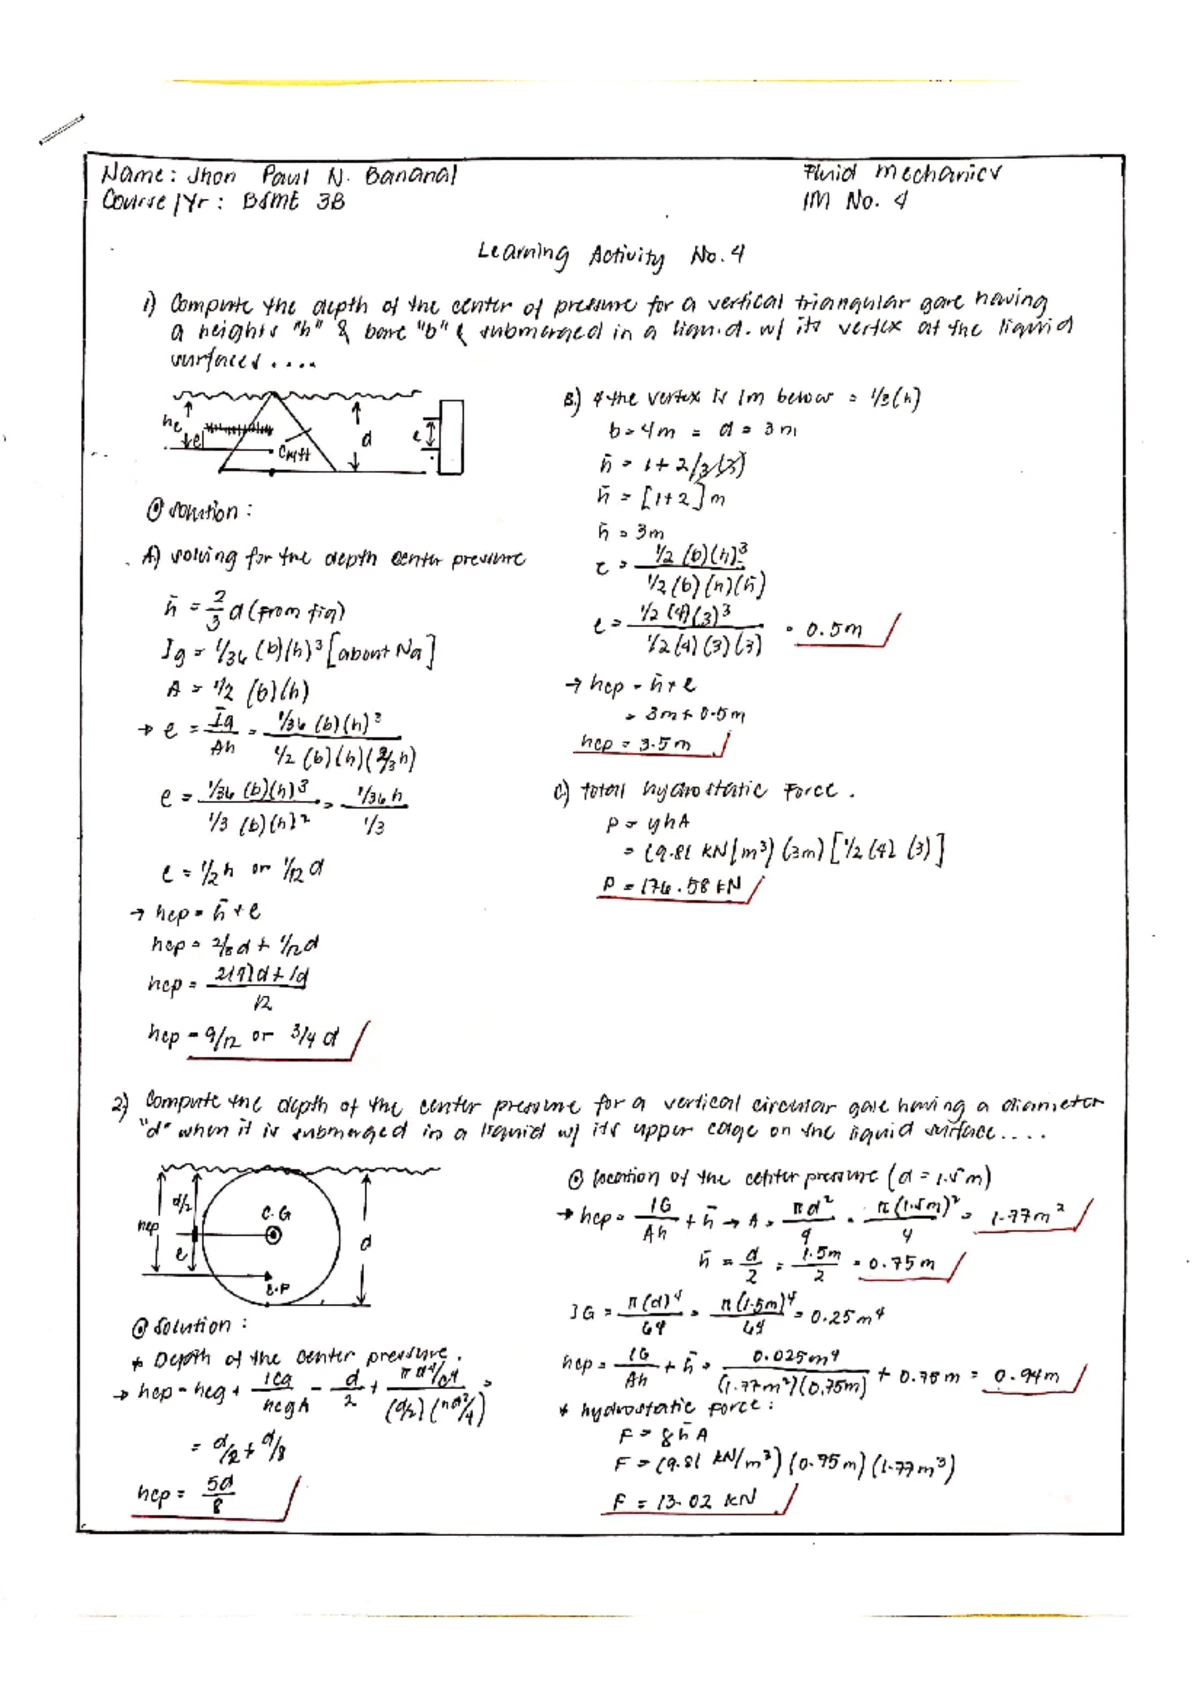 Name: Jhon Paul N. Bananal
Fluid Mechanics
Course/Yr: BSMT 3B
IM No. 4
Learning Activity No. 4
1) Compute the depth of the center of pressure for a vertical triangular gate having
a heights "h" & base "b" & submerged in a liquid. w/ its vertex at the liquid
surfaces....
hc
e
d
e
⊙ Solution:
A) Solving for the depth center pressure
h̄ = 2/3 d (from fig)
Ig = 1/36 (b)(h)³ [about Na]
A = 1/2 (b)(h)
→ e = Ig/Ah = 1/36 (b)(h)³ / 1/2 (b)(h)(2/3h)
e = 1/36 (b)(h)³ / 1/3 (b)(h)² = 1/36 h / 1/3
e = 1/2 h or 1/12 d
→ hcp = h̄ + e
hcp = 2/3 d + 1/12 d
hcp = d + 1d / 12
hcp = 9/12 or 3/4 d
B.) If the vertex is 1m below = 1/3(h)
b = 4m = d = 3m
h̄ = 1 + 2/3(3)
h̄ = [1+2] m
h̄ = 3m
e = 1/2 (b)(h)³ / 1/2 (b)(h)(h̄)
e = 1/2 (4)(3)³ / 1/2 (4)(3)(3) = 0.5m
→ hcp = h̄ + e
= 3m + 0.5m
hcp = 3.5m
C) total hydrostatic Force.
P = yhA
= (9.81 KN/m³) (3m) [1/2 (4) (3)]
P = 176.58 KN
2) Compute the depth of the center pressure for a vertical circular gate having a diameter
"d" when it is submerged in a liquid w/ its upper edge on the liquid surface....
d/2
hcp
e
C.G
C.P
d
⊙ Solution:
* Depth of the center pressure.
→ hcp = hcg + Icg/hcgA = d/2 + πd⁴/64 / (d/2)(πd²/4) =
= d/2 + d/8
hcp = 5d/8
⊙ location of the center pressure (d = 1.5m)
→ hcp = IG/Ah + h̄ → A = πd²/4 = π(1.5m)²/4 = 1.77m²
h̄ = d/2 = 1.5m/2 = 0.75m
IG = π(d)⁴/64 = π(1.5m)⁴/64 = 0.25m⁴
hcp = IG/Ah + h̄ = 0.025m⁴/(1.77m²)(0.75m) + 0.75m = 0.94m
* hydrostatic force:
F = γh̄A
F = (9.81 KN/m³) (0.75m) (1.77m³)
F = 13.02 KN